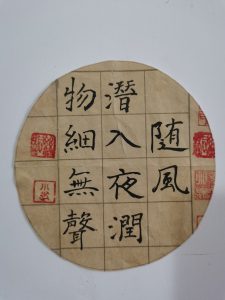 随風
潛入夜潤
物細無聲